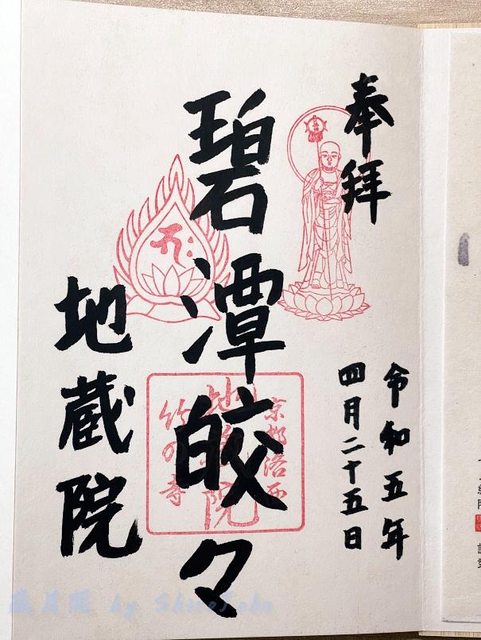 奉拝
令和五年
四月二十五日
碧潭皎々
地蔵院
京都洛西
地蔵院
竹の寺